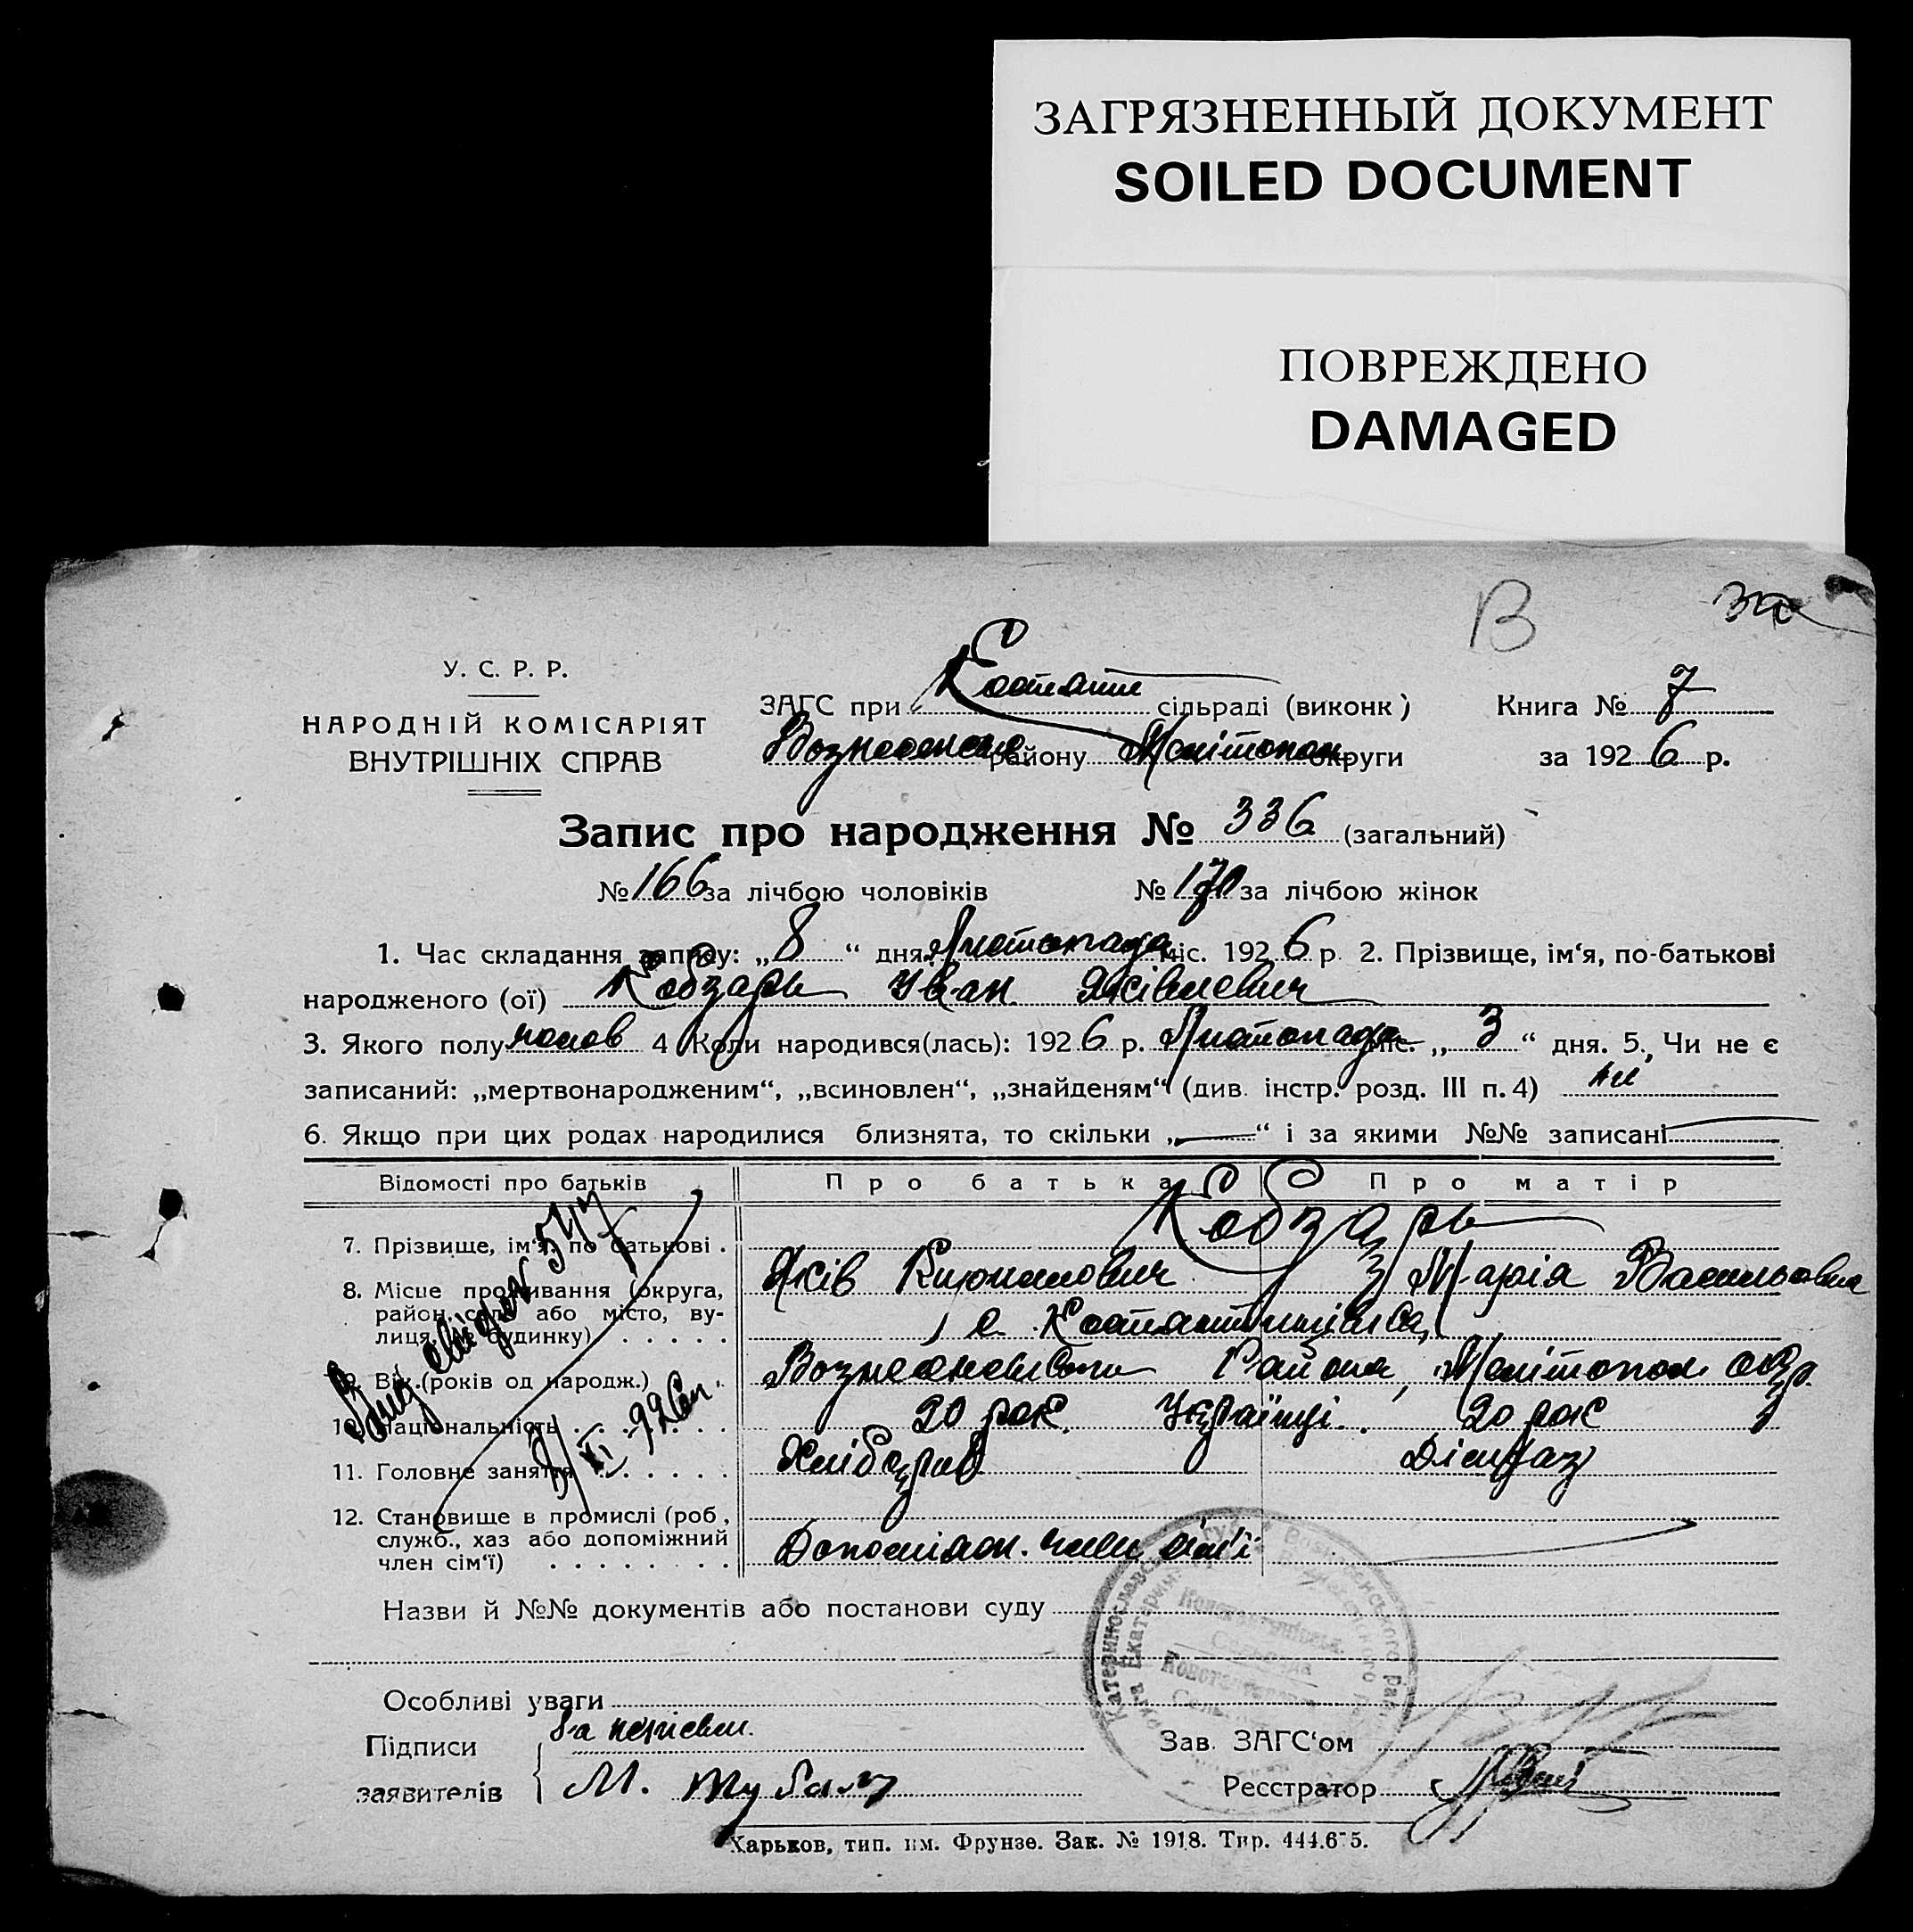 ЗАГРЯЗНЕННЫЙ ДОКУМЕНТ
SOILED DOCUMENT
ПОВРЕЖДЕНО
DAMAGED
В
У. С. Р. Р.
НАРОДНІЙ КОМІСАРІЯТ
ВНУТРІШНІХ СПРАВ
ЗАГС при Костант сільраді (виконк) Книга № 7
району Мелітопол округи за 1926 р.
Запис про народження № 336 (загальний)
№ 166 за лічбою чоловіків № 170 за лічбою жінок
1. Час складання запису: „8“ дня Листопада міс. 1926 р. 2. Прізвище, ім‘я, по-батькові
народженого (ої) Кобзарь Іван Яківлевич
3. Якого полу чолов 4 Коли народився(лась): 1926 р. Листопада міс. „3“ дня. 5. Чи не є
записаний: „мертвонародженим“, „всиновлен“, „знайденям“ (див. інстр. розд. III п. 4) ні
6. Якщо при цих родах народилися близнята, то скільки „—“ і за якими №№ записані
Відомості про батьків Про батька Про матір
7. Прізвище, ім‘я, по батькові . Кобзарь
Яків Марія Васильовна
8. Місце проживання (округа,
район, село або місто, ву-
лиця, № будинку) . . . . . с. Костантинівка,
9. Вік (років од народж.) . Района, Мелітопол окр.
10. Національність . . . . . 20 рок Українці. 20 рок
11. Головне заняття . . . . . Хлібороб
12. Становище в промислі (роб,
служб., хаз або допоміжний
член сім‘ї) . . . . . . . . Допоміжн. член сім'ї
Вид свідоц 547
9/XI 926 р.
Назви й №№ документів або постанови суду
Особливі уваги
Підписи Зав. ЗАГС‘ом
заявителів М. Реєстратор
Харьков, тип. им. Фрунзе. Зак. № 1918. Тир. 444.675.